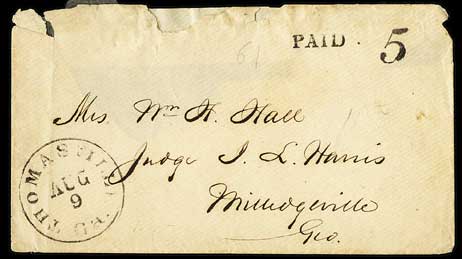 PAID. 5
61
Mrs. Wm H. Hall
Judge I. L. Harris
Milledgeville
Geo.
THOMASVILLE GA.
AUG
9